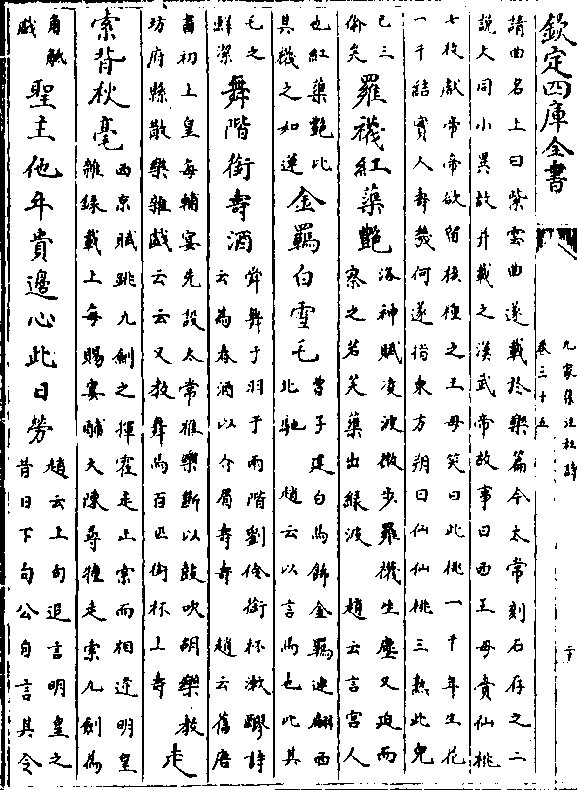 欽定四庫全書
九家集注杜詩
卷三十五
請曲名上曰紫雲曲遂載於樂篇今太常刻石存之二
說大同小異故并載之漢武帝故事曰西王母賷仙桃
七枚獻帝帝欲留核種之王母笑曰此桃一千年生花
一千結實人壽幾何遂指東方朔曰仙仙桃三熟此兒
已三
偷矣
羅襪紅蕖艷
洛神賦凌波微步羅襪生塵又迫而
察之若芙蕖出綠波 趙云言宮人
也紅蕖艷比
其襪之如蓮
金羈白雪毛
曹子建白馬飾金羈連翩西
北馳 趙云以言馬也此其
毛之
鮮潔
舞階銜壽酒
舜舞干羽于兩階劉伶銜杯漱醪詩
云為春酒以介眉壽壽 趙云舊唐
書初上皇每酺宴先設太常雅樂斷以鼓吹胡樂教
坊府縣散樂雜戲云云又教舞馬百匹銜杯上壽
走
索背秋毫
西京賦跳丸劍之揮霍走上索而相逢明皇
雜錄載上每賜宴酺大陳尋橦走索丸劍為
角觝
戲
聖主他年貴邊心此日勞
趙云上句追言明皇之
昔日下句公自言其今